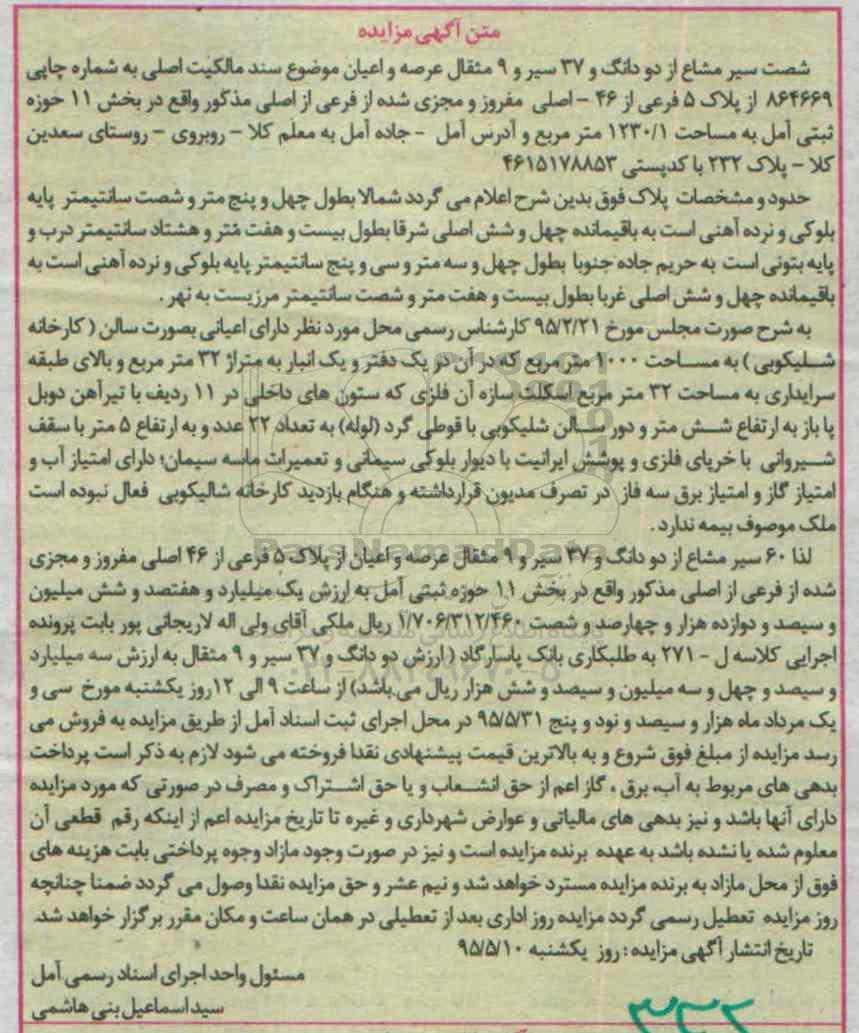 متن آگهی مزایده
شصت سیر مشاع از دو دانگ و ۳۷ سیر و ۹ مثقال عرصه و اعیان موضوع سند مالکیت اصلی به شماره چاپی
۸۶۴۶۶۹ از پلاک ۵ فرعی از ۴۶ - اصلی مفروز و مجزی شده از فرعی از اصلی مذکور واقع در بخش ۱۱ حوزه
ثبتی آمل به مساحت ۱۲۳۰/۱ متر مربع و آدرس آمل - جاده آمل به معلم کلا - روبروی - روستای سعدین
کلا - پلاک ۲۳۲ با کدپستی ۴۶۱۵۱۷۸۸۵۳
حدود و مشخصات پلاک فوق بدین شرح اعلام می گردد شمالا بطول چهل و پنج متر و شصت سانتیمتر پایه
بلوکی و نرده آهنی است به باقیمانده چهل و شش اصلی شرقا بطول بیست و هفت متر و هشتاد سانتیمتر درب و
پایه بتونی است به حریم جاده جنوبا بطول چهل و سه متر و سی و پنج سانتیمتر پایه بلوکی و نرده آهنی است به
باقیمانده چهل و شش اصلی غربا بطول بیست و هفت متر و شصت سانتیمتر مرزیست به نهر .
به شرح صورت مجلس مورخ ۹۵/۲/۲۱ کارشناس رسمی محل مورد نظر دارای اعیانی بصورت سالن ( کارخانه
شلیکوبی ) به مساحت ۱۰۰۰ متر مربع که در آن دو یک دفتر و یک انبار به متراژ ۳۲ متر مربع و بالای طبقه
سرایداری به مساحت ۳۲ متر مربع اسکلت سازه آن فلزی که ستون های داخلی در ۱۱ ردیف با تیرآهن دوبل
پا باز به ارتفاع شش متر و دور سالن شلیکوبی با قوطی گرد (لوله) به تعداد ۲۲ عدد و به ارتفاع ۵ متر با سقف
شیروانی با خرپای فلزی و پوشش ایرانیت با دیوار بلوکی سیمانی و تعمیرات ماسه سیمان؛ دارای امتیاز آب و
امتیاز گاز و امتیاز برق سه فاز در تصرف مدیون قرارداشته و هنگام بازدید کارخانه شالیکوبی فعال نبوده است
ملک موصوف بیمه ندارد .
ParsNamadData
لذا ۶۰ سیر مشاع از دو دانگ و ۳۷ سیر و ۹ مثقال عرصه و اعیان از پلاک ۵ فرعی از ۴۶ اصلی مفروز و مجزی
شده از فرعی از اصلی مذکور واقع در بخش ۱۱ حوزه ثبتی آمل به ارزش یک میلیارد و هفتصد و شش میلیون
و سیصد و دوازده هزار و چهارصد و شصت ۱/۷۰۶/۳۱۲/۴۶۰ ریال ملکی آقای ولی اله لاریجانی پور بابت پرونده
اجرایی کلاسه ل - ۲۷۱ به طلبکاری بانک پاسارگاد ( ارزش دو دانگ و ۳۷ سیر و ۹ مثقال به ارزش سه میلیارد
و سیصد و چهل و سه میلیون و سیصد و شش هزار ریال می باشد) از ساعت ۹ الی ۱۲ روز یکشنبه مورخ سی و
یک مرداد ماه هزار و سیصد و نود و پنج ۹۵/۵/۳۱ در محل اجرای ثبت اسناد آمل از طریق مزایده به فروش می
رسد مزایده از مبلغ فوق شروع و به بالاترین قیمت پیشنهادی نقدا فروخته می شود لازم به ذکر است پرداخت
بدهی های مربوط به آب، برق ، گاز اعم از حق انشعاب و یا حق اشتراک و مصرف در صورتی که مورد مزایده
دارای آنها باشد و نیز بدهی های مالیاتی و عوارض شهرداری و غیره تا تاریخ مزایده اعم از اینکه رقم قطعی آن
معلوم شده یا نشده باشد به عهده برنده مزایده است و نیز در صورت وجود مازاد وجوه پرداختی بابت هزینه های
فوق از محل مازاد به برنده مزایده مسترد خواهد شد و نیم عشر و حق مزایده نقدا وصول می گردد ضمنا چنانچه
روز مزایده تعطیل رسمی گردد مزایده روز اداری بعد از تعطیلی در همان ساعت و مکان مقرر برگزار خواهد شد.
تاریخ انتشار آگهی مزایده : روز یکشنبه ۹۵/۵/۱۰
مسئول واحد اجرای اسناد رسمی آمل
سید اسماعیل بنی هاشمی